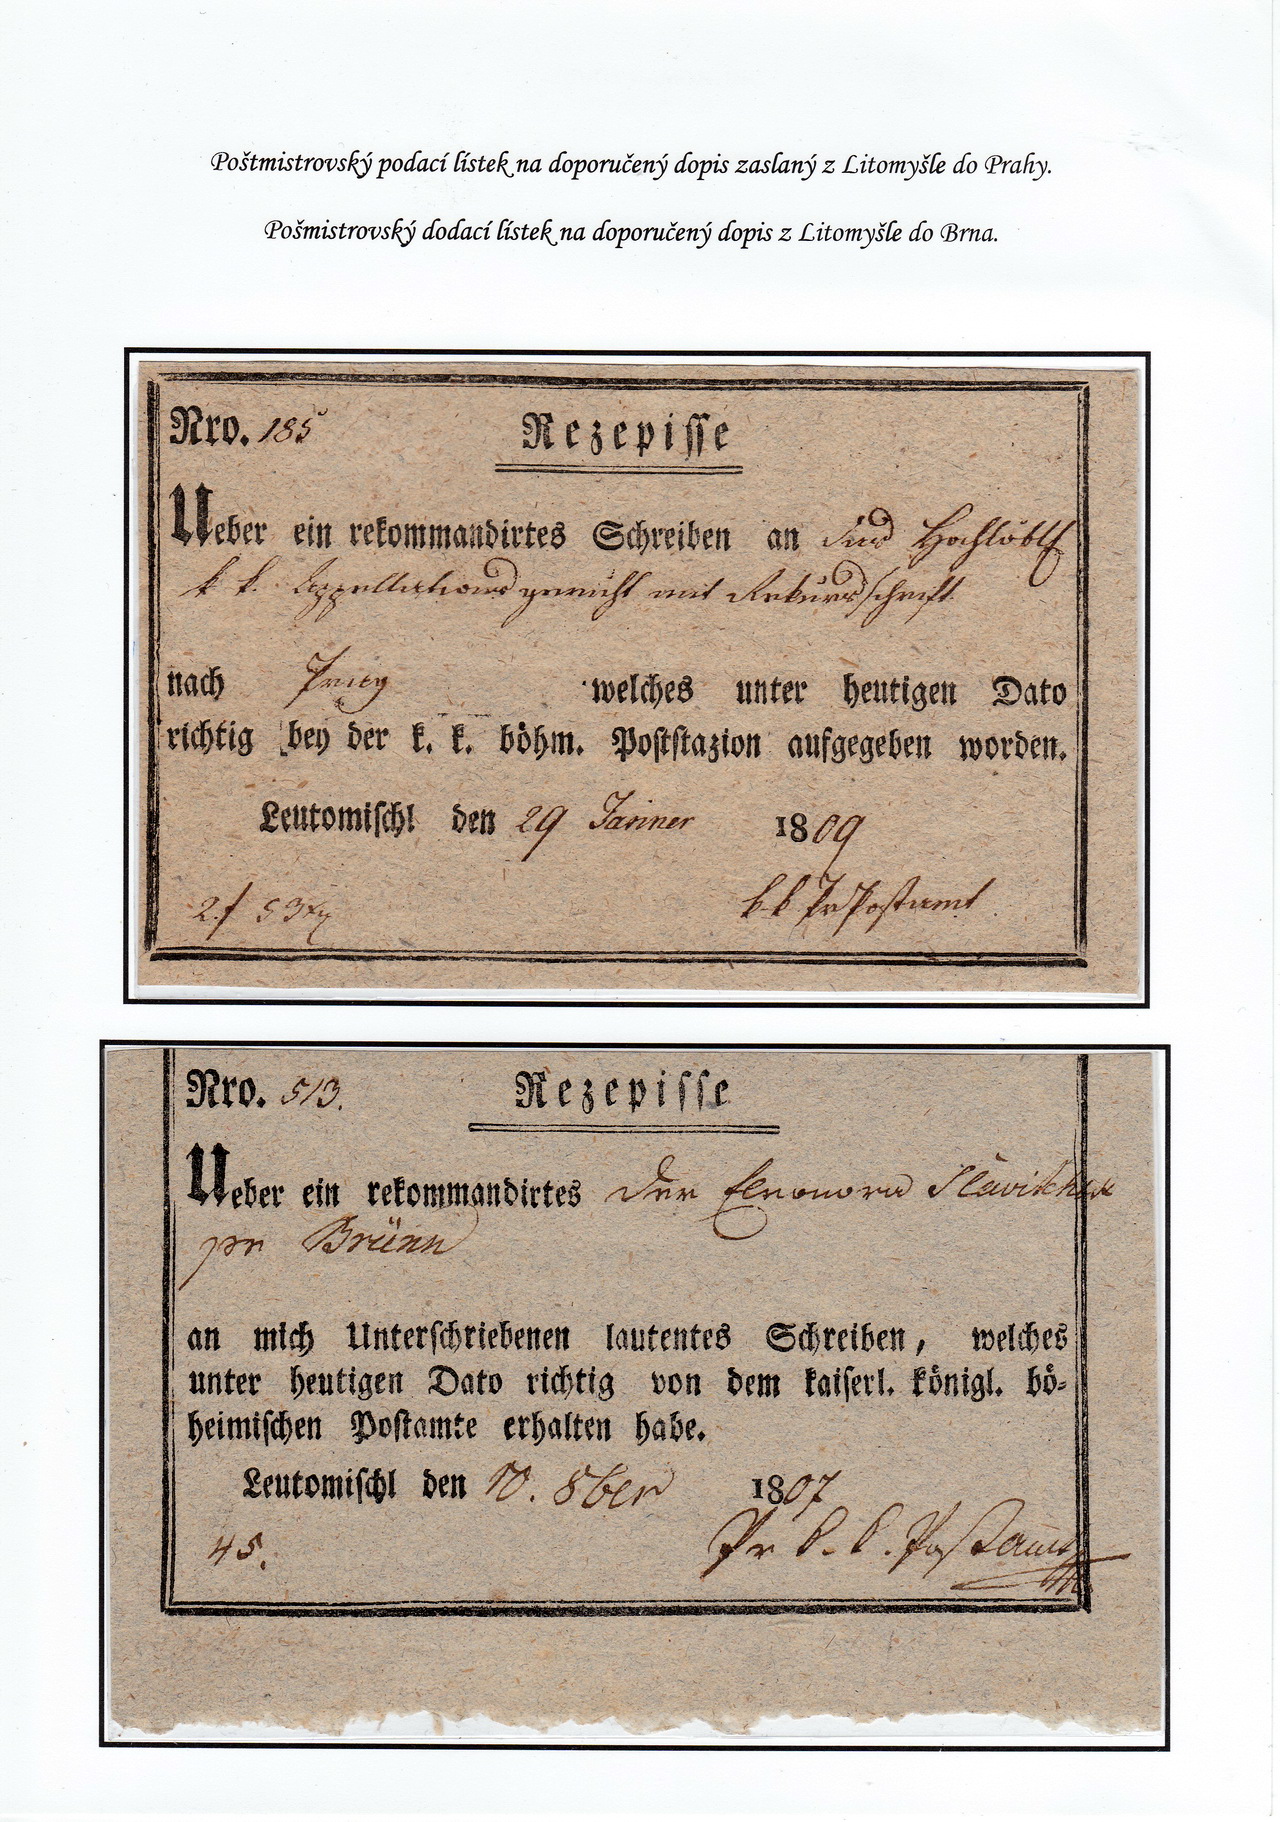 Poštmistrovský podací lístek na doporučený dopis zaslaný z Litomyšle do Prahy.
Pošmistrovský dodací lístek na doporučený dopis z Litomyšle do Brna.
Nro. 185 Rezepisse
Ueber ein rekommandirtes Schreiben an Hochlöbl
k k. Appellationsgericht mit Rekursschrift
nach Prag welches unter heutigen Dato
richtig bey der k. k. böhm. Poststazion aufgegeben worden.
Leutomischl den 29 Janner 1809
2 f 53 xr k k Pr Postamt
Nro. 513. Rezepisse
Ueber ein rekommandirtes der Eleonora
pr Brünn
an mich Unterschriebenen lautentes Schreiben, welches
unter heutigen Dato richtig von dem kaiserl. königl. bö-
heimischen Postamte erhalten habe.
Leutomischl den 10. 8ber 1807
45. Pr k. k. Postamt